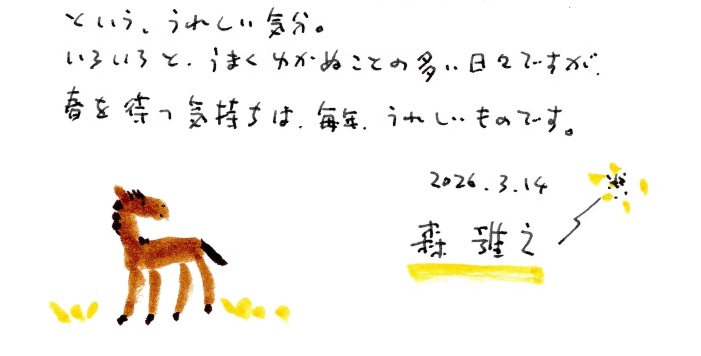 という、うれしい気分。
いろいろと、うまくゆかぬことの多い日々ですが、
春を待つ気持ちは、毎年、うれしいものです。
2026.3.14
森 雅之